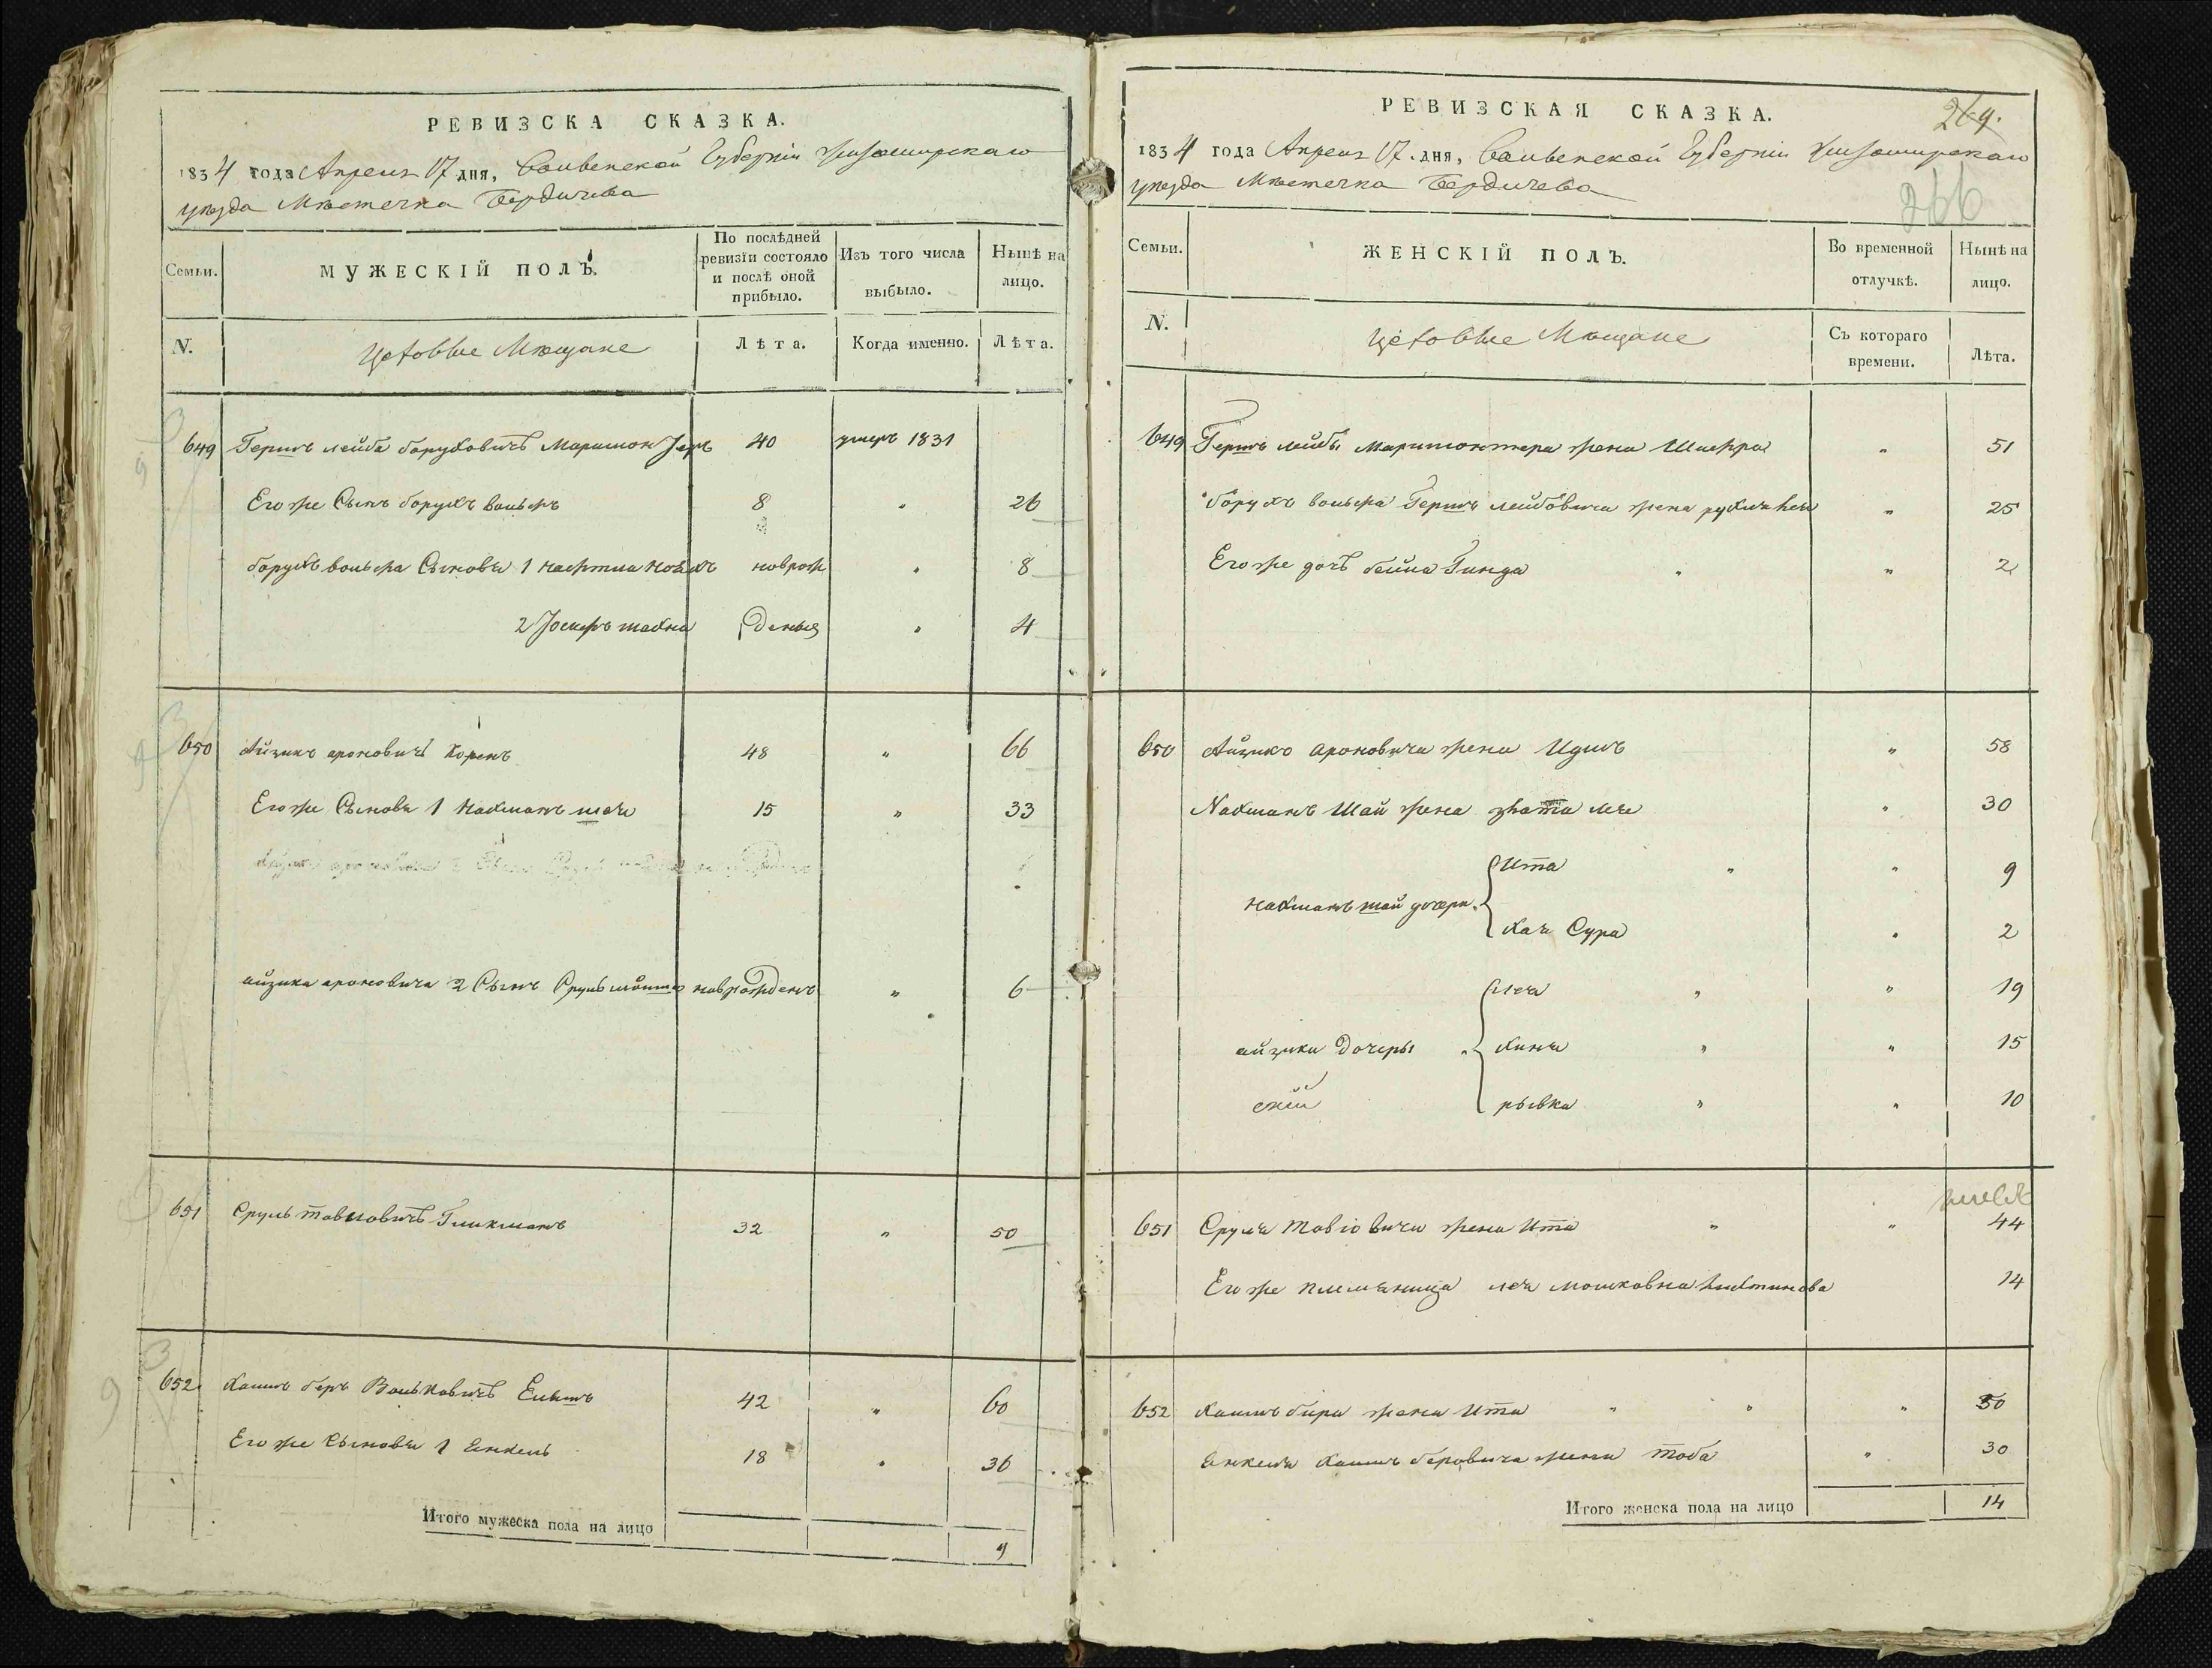 РЕВИЗСКА СКАЗКА.
1834 года Апреля 17 дня, Волынской Губернiи Житомирскаго
уѣзда Мѣстечка Бердичева
Семьи.
МУЖЕСКIЙ ПОЛЪ.
По послѣдней ревизiи состояло и послѣ оной прибыло.
Изъ того числа выбыло.
Нынѣ на лицо.
N.
Цеховые Мещане
Лѣта.
Когда именно.
Лѣта.
649 Гершъ лейба боруховичъ 40 умеръ 1831
Его же Сынъ борухъ вольфъ 8 " 26
борухъ вольфа Сыновья 1 новрож 8
2 Іосифъ деныя " 4
650 Айзикъ ароновичъ Коренъ 48 " 66
Его же Сыновья 1 Нахманъ шая 15 " 33
айзика ароновича 2 Сынъ Сруль новрожденъ " 6
651 Сруль тавиовичъ Гликманъ 32 " 50
652 Хаимъ беръ Вольковичъ 42 " 60
Его же Сыновья 1 Янкель 18 " 36
Итого мужеска пола на лицо
9
РЕВИЗСКАЯ СКАЗКА.
269.
1834 года Апреля 17 дня, Волынской Губернiи Житомирскаго
уѣзда Мѣстечка Бердичева
266
Семьи.
ЖЕНСКIЙ ПОЛЪ.
Во временной отлучкѣ.
Нынѣ на лицо.
N.
Цеховые Мещане
Съ котораго времени.
Лѣта.
649 Гершъ лейбы жена " 51
борухъ вольфа Гершъ лейбовича жена " 25
Его же дочь бейла Гинда " " 2
650 Айзика ароновича жена Идись " 58
Нахманъ Шаи жена злата лея " 30
Ита " " 9
нахманъ шаи дочери
Хая Сура " 2
лея " " 19
айзика Дочеры " хина " " 15
рывка " " 10
651 Сруля тавіовича жена Ита " " 44
Его же племяница лея мошковна 14
652 Хаимъ бера жена Ита " " " 50
янкеля хаимъ беровича жена тоба " 30
Итого женска пола на лицо 14